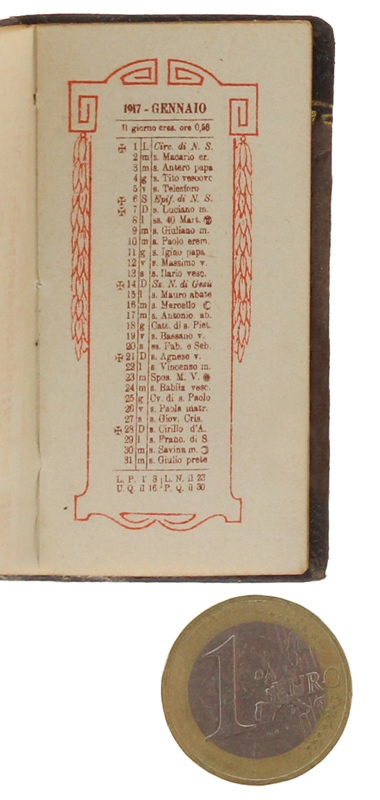 1917 - GENNAIO
Il giorno cres. ore 0,58
✠ 1 L Circ. di N. S.
2 m s. Macario er.
3 m s. Antero papa
4 g s. Tito vescovo
5 v s. Telesforo
✠ 6 S Epif. di N. S.
✠ 7 D s. Luciano m.
8 l ss. 40 Mart.
9 m s. Giuliano m.
10 m s. Paolo erem.
11 g s. Igino papa
12 v s. Massimo v.
13 s s. Ilario vesc.
✠ 14 D Ss. N. di Gesù
15 l s. Mauro abate
16 m s. Marcello
17 m s. Antonio ab.
18 g Catt. di s. Piet.
19 v s. Bassano v.
20 s ss. Fab. e Seb.
✠ 21 D s. Agnese v.
22 l s. Vincenzo m.
23 m Spos. M. V.
24 m s. Babila vesc.
25 g Cv. di s. Paolo
26 v s. Paola matr.
27 s s. Giov. Cris.
✠ 28 D s. Cirillo d'A.
29 l s. Franc. di S.
30 m s. Savina m.
31 m s. Giulio prete
L. P. l' 8 L. N. il 23
U. Q. il 16 P. Q. il 30
1 EURO